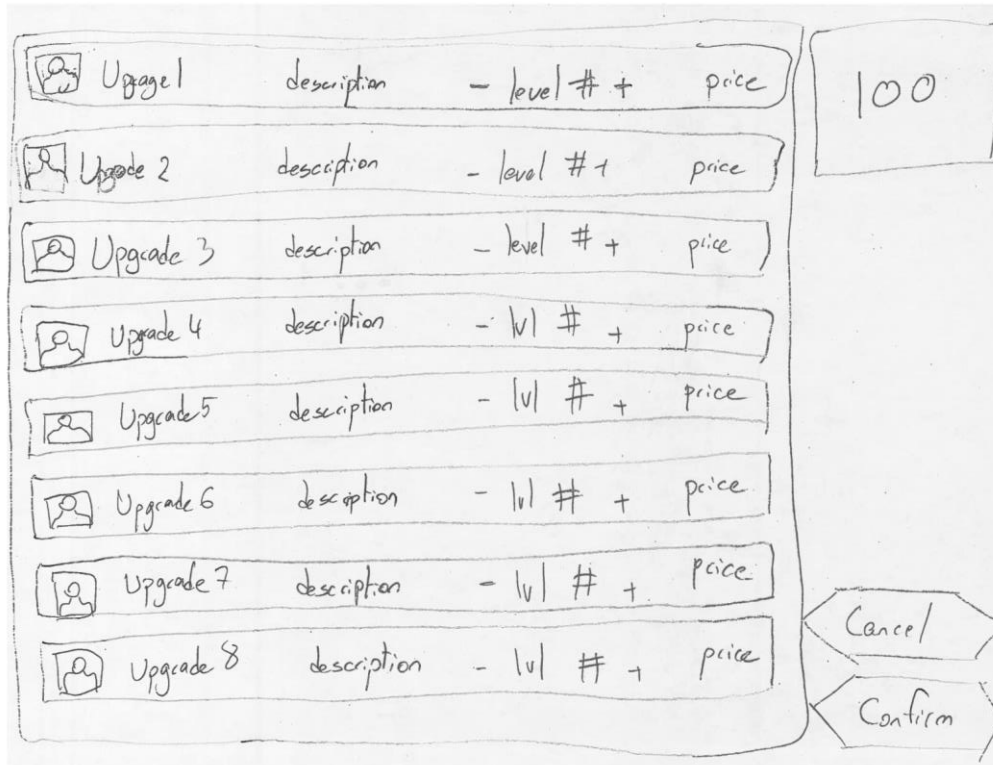 Upgrage 1 description - level # + price
100
Upgrade 2 description - level # + price
Upgrade 3 description - level # + price
Upgrade 4 description - lvl # + price
Upgrade 5 description - lvl # + price
Upgrade 6 description - lvl # + price
Upgrade 7 description - lvl # + price
Upgrade 8 description - lvl # + price
Cancel
Confirm